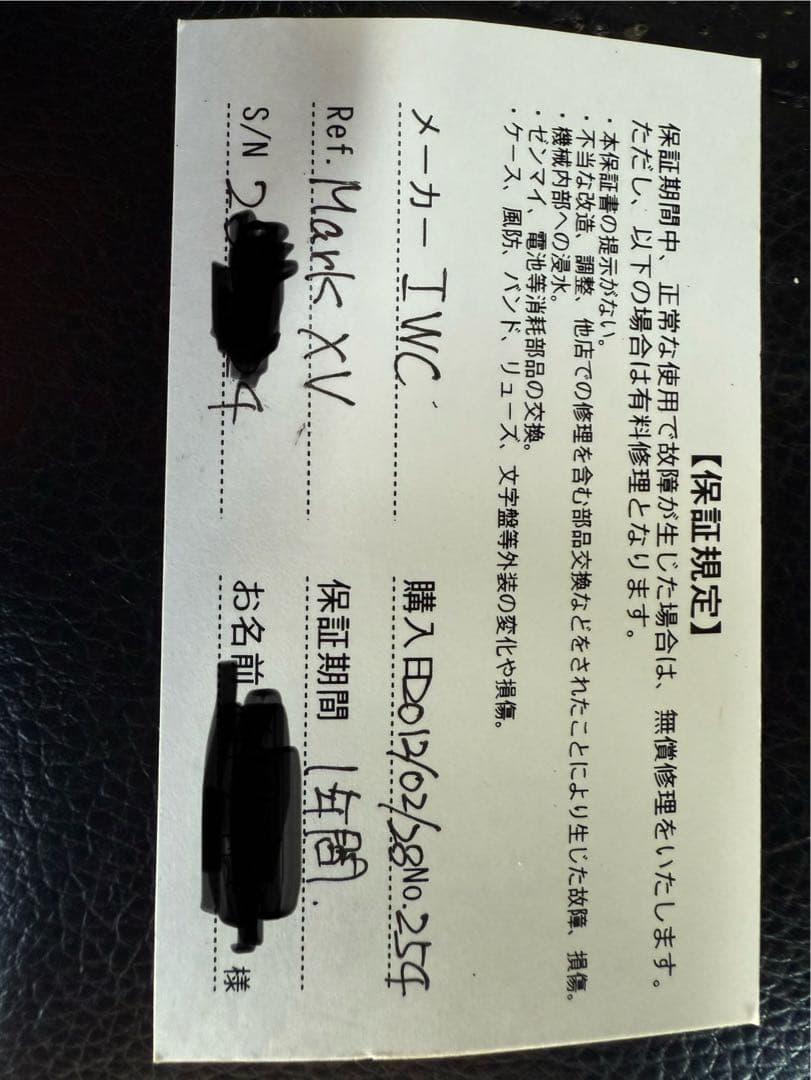 【保証規定】
保証期間中、正常な使用で故障が生じた場合は、無償修理をいたします。
ただし、以下の場合は有料修理となります。
・本保証書の提示がない。
・不当な改造、調整、他店での修理を含む部品交換などをされたことにより生じた故障、損傷。
・機械内部への浸水。
・ゼンマイ、電池等消耗部品の交換。
・ケース、風防、バンド、リューズ、文字盤等外装の変化や損傷。
メーカー IWC 購入日2012/02/28 No.254
Ref. Mark XV 保証期間 1年間.
S/N 2 4 お名前 様